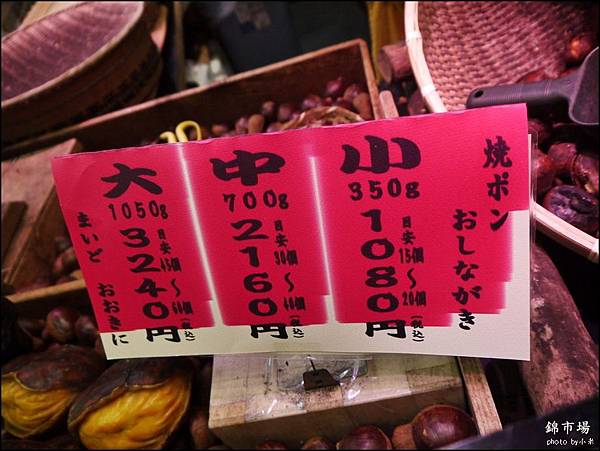 焼ポン
おしながき
小
350g
目安15個～20個
1080円(税込)
中
700g
目安30個～40個
2160円(税込)
大
1050g
目安45個～60個
3240円(税込)
まいど おおきに
錦市場
photo by 小米